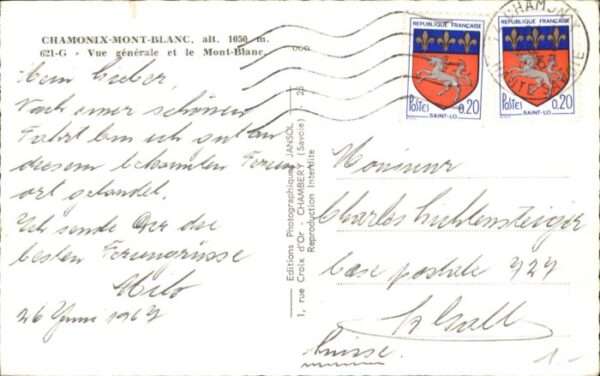 CHAMONIX-MONT-BLANC, alt. 1050 m.
621-G - Vue générale et le Mont-Blanc.
Mein Lieber,
Nach einer schönen
Fahrt bin ich gut an
diesem bekannten Ferien
ort gelandet.
Ich sende Dir die
besten Feriengrüsse
26 Juni 1967
Editions Photographiques JANSOL
1, rue Croix d'Or - CHAMBERY (Savoie)
Reproduction Interdite
REPUBLIQUE FRANÇAISE
Postes 0,20
SAINT-LO
REPUBLIQUE FRANÇAISE
Postes 0,20
SAINT-LO
CHAMONIX
Monsieur
Charles Lichtensteiger
Case postale 727
St Gall
Suisse.
1-